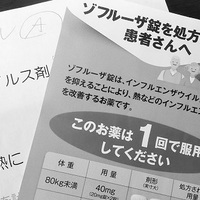 A
ルス剤
熱に
ゾフルーザ錠を処方
患者さんへ
ゾフルーザ錠は、インフルエンザウイル
を抑えることにより、熱などのインフルエン
を改善するお薬です。
このお薬は1回で服用
してください
体重
用量
剤形
処方され
80kg未満
40mg